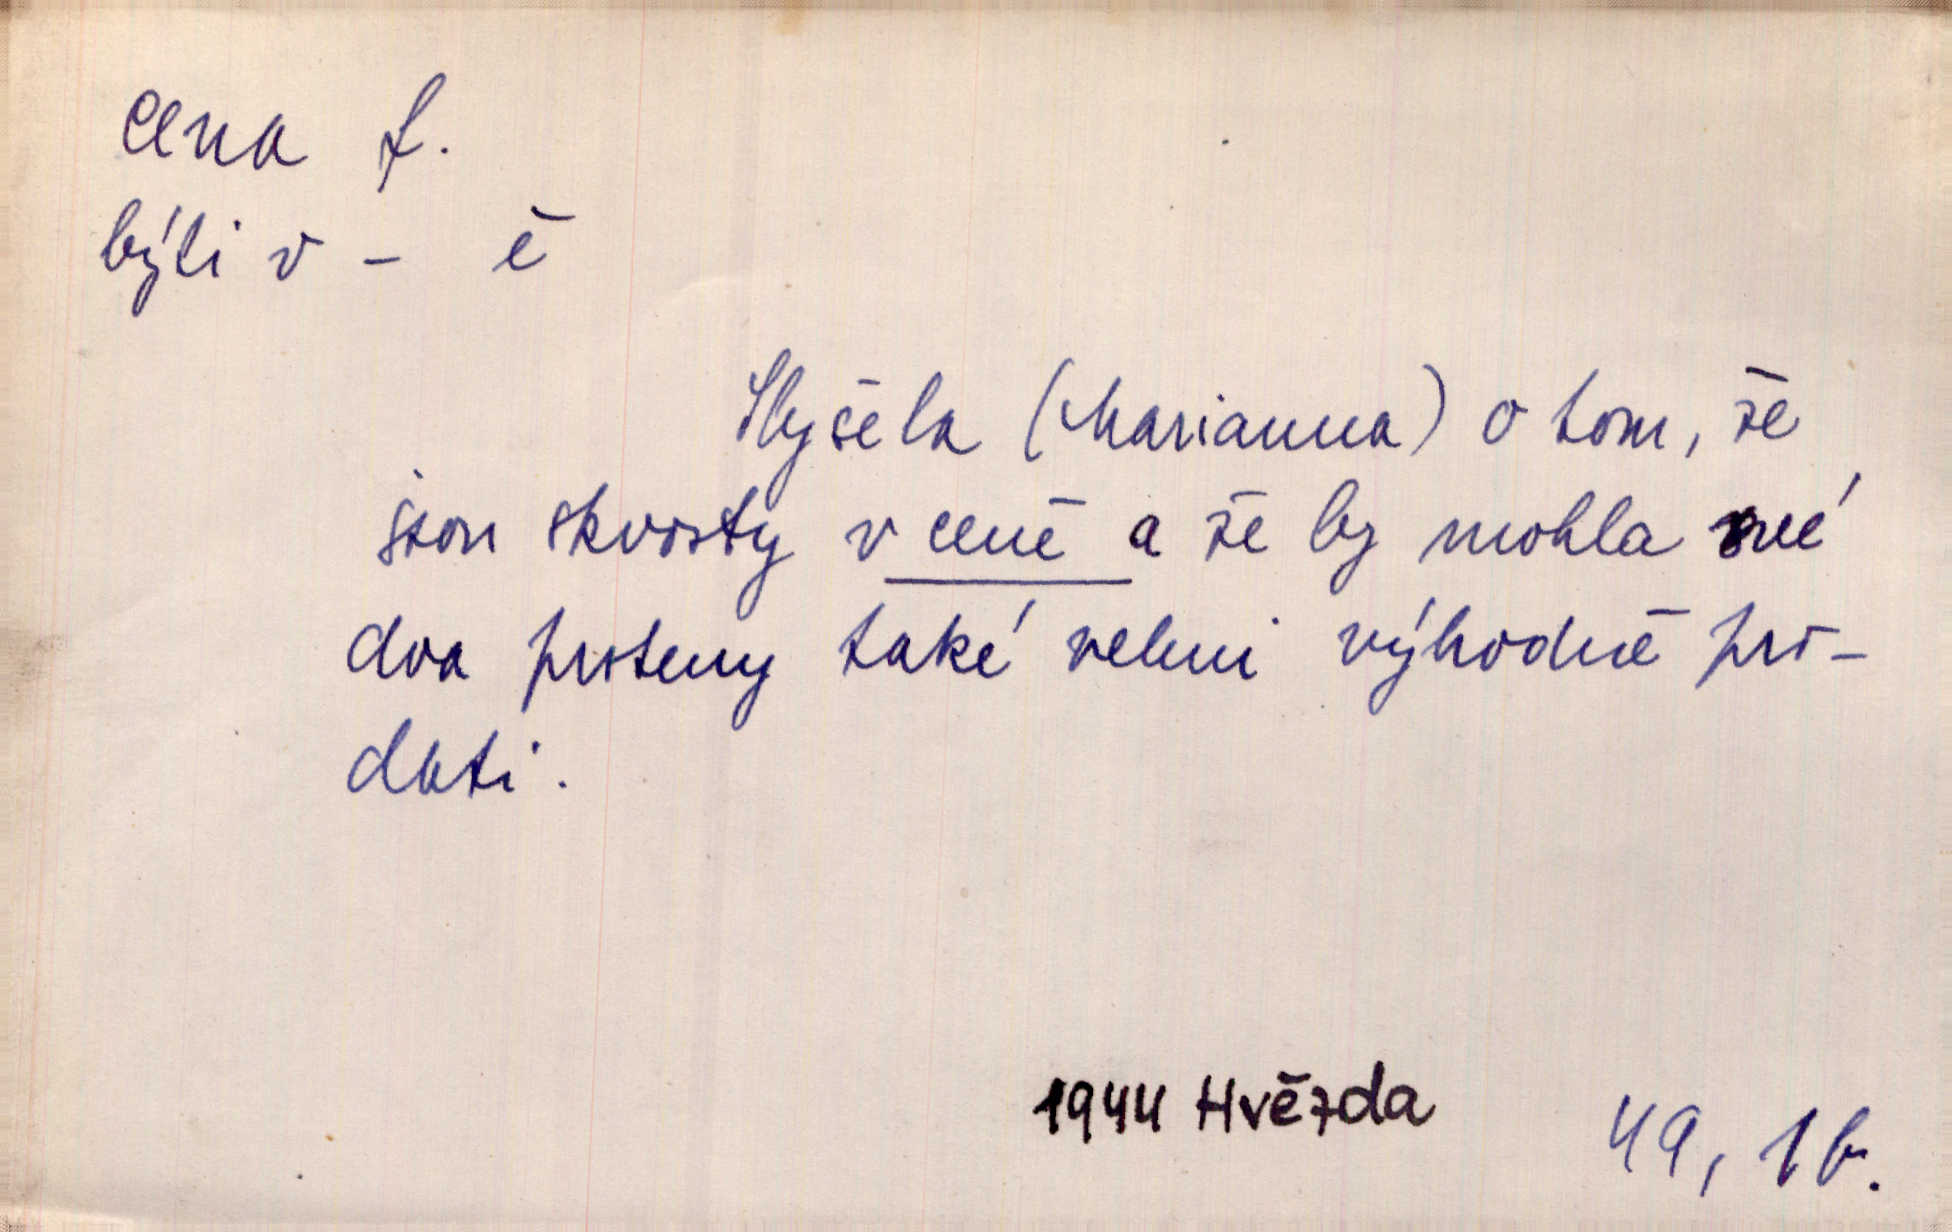 cena f.
býti v - ě
Slyšela (Marianna) o tom, že
jsou skvosty v ceně a že by mohla své
dva prsteny také velmi výhodně pro-
dati.
1944 Hvězda
49, 1b.